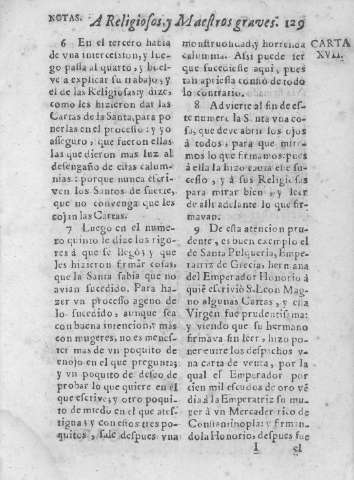 NOTAS. A Religiosos, y Maestros graves. 129
CARTA
XVII.
6 En el tercero hazia
de vna intercession, y luego
passa al quarto, y buel-
ve a explicar su trabajo, y
el de las Religiosas: y dize,
como les hizieron dar las
Cartas de la Santa, para po-
nerlas en el processo: y yo
asseguro, que fueron ellas
las que dieron mas luz al
desengaño de estas calum-
nias: porque nunca escri-
ven los Santos de suerte,
que no convenga que les
cojan las Cartas.
7 Luego en el nume-
ro quinto le dize los rigo-
res á que se llegó; y que
les hizieron firmar cosas,
que la Santa sabia que no
avian sucedido. Para ha-
zer vn processo ageno de
lo sucedido, aunque sea
con buena intencion, y mas
con mugeres, no es menes-
ter mas de vn poquito de
enojo en el que pregunta;
y vn poquito de deseo de
probar lo que quiere en el
que escrive; y otro poqui-
to de miedo en el que ates-
tigua; y con estos tres po-
quitos, sale despues vna
monstruosidad, y horrenda
calumnia. Assi puede ser
que sucediesse aqui, pues
tan apriessa constó de todo
lo contrario.
8 Advierte al fin de es-
te numero la Santa vna co-
sa, que deve abrir los ojos
á todos, para que mire-
mos lo que firmamos, pues
á ella la hizo cauta este su-
cesso, y á sus Religiosos
para mirar bien, y leer
de alli adelante lo que fir-
mavan.
9 De esta atencion pru-
dente, es buen exemplo el
de Santa Pulqueria, Empera-
triz de Grecia: hermana
del Emperador Honorio á
quiẽ escrivió S. Leon Mag-
no algunas Cartas, y esta
Virgen fué prudentissima:
y viendo que su hermano
firmava sin leer, hizo po-
ner entre los despachos vna
carta de venta, por la
qual el Emperador por
cien mil escudos de oro vẽ-
dia á la Emperatriz su mu-
ger á vn Mercader rico de
Constantinopla: y firman-
dola Honorio, despues fue
I el